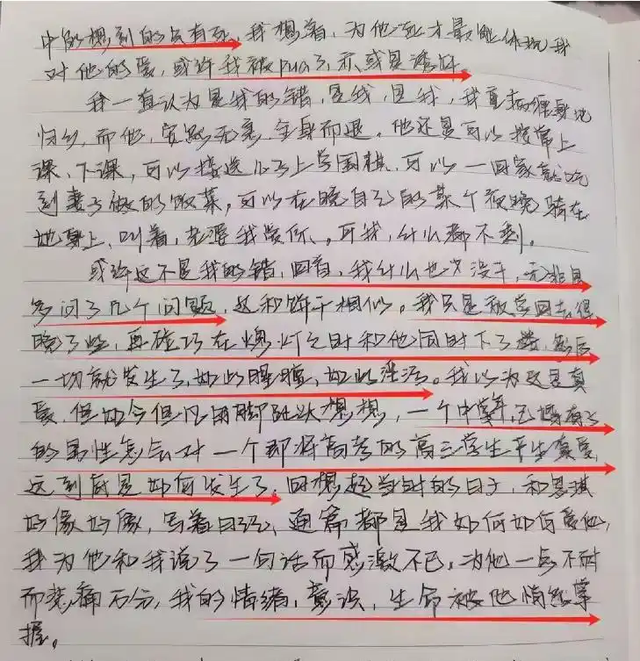 中能想到的只有死，我想着，为他死才最能体现我
对他的爱，或许我被pua了，亦或是
我一直认为是我的错，是我，是我，我重病缠身地
归乡，而他，安然无恙，全身而退。他还是可以按常上
课、下课，可以接送儿子上写围棋，可以一回家就吃
到妻子做的饭菜，可以在晚自习的某个夜晚骑在
她身上，叫着，老婆我爱你、可我，什么都不剩。
或许这不是我的错，回首，我什么也没干，无非是
多问了几个问题，这和饼干相似。我只是被学回去得
晚了些，再碰巧在熄灯之时和他同时下了楼，然后
一切就发生了，如此暧昧，如此淫荡。我以为这是真
爱，但如今但凡用脚趾头想想，一个中年，已婚有子
的男性怎么对一个即将高考的高三学生产生真爱，
这到底是如何发生了，回想起当时的日子，和思琪
好像好像，写着日记，通篇都是我如何如何爱他，
我为他和我说了一句话而感激不已，为他一点不耐
而悲痛万分，我的情绪，意识，生命被他悄然掌
握。